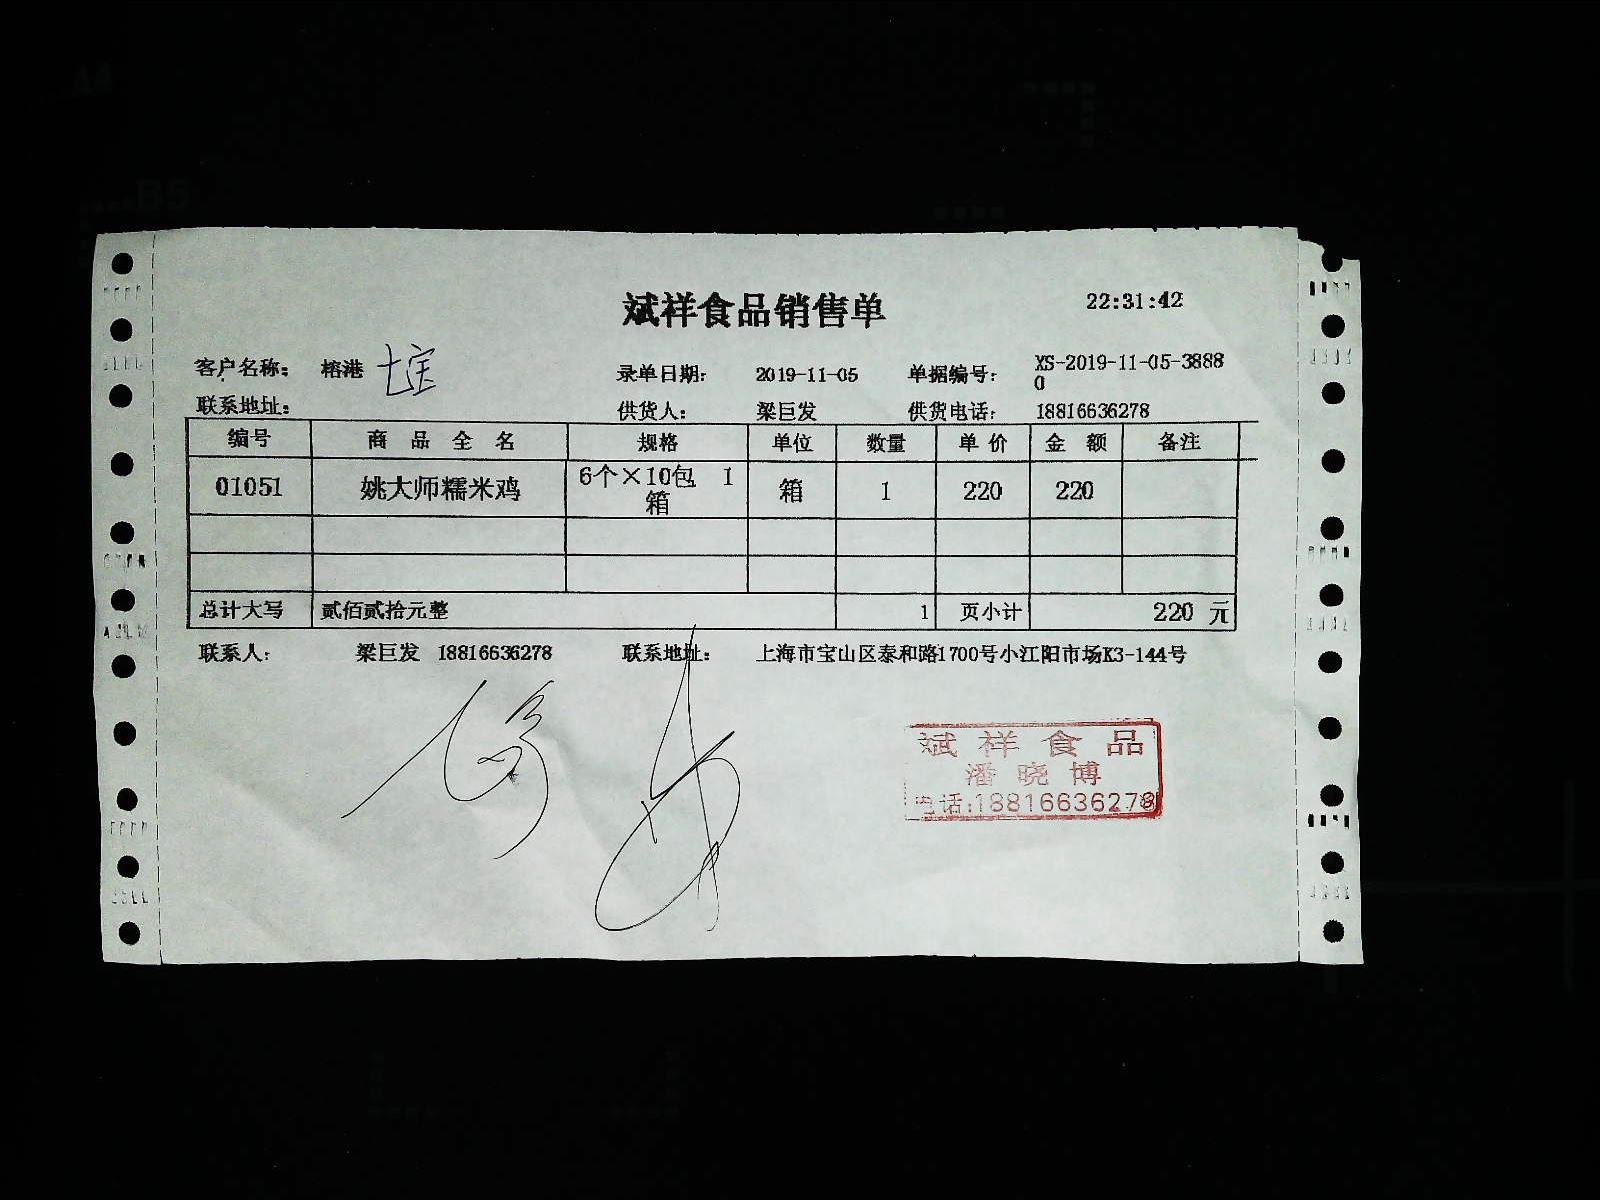 斌祥食品销售单 22:31:42
客户名称： 榕港 七宝 录单日期： 2019-11-05 单据编号： XS-2019-11-05-3888
0
联系地址： 供货人： 梁巨发 供货电话： 18816636278
编号 商品全名 规格 单位 数量 单价 金额 备注
01051 姚大师糯米鸡 6个×10包 1 箱 1 220 220
箱
总计大写 贰佰贰拾元整 1 页小计 220 元
联系人： 梁巨发 18816636278 联系地址： 上海市宝山区泰和路1700号小江阳市场K3-144号
斌祥食品
潘晓博
电话:18816636278